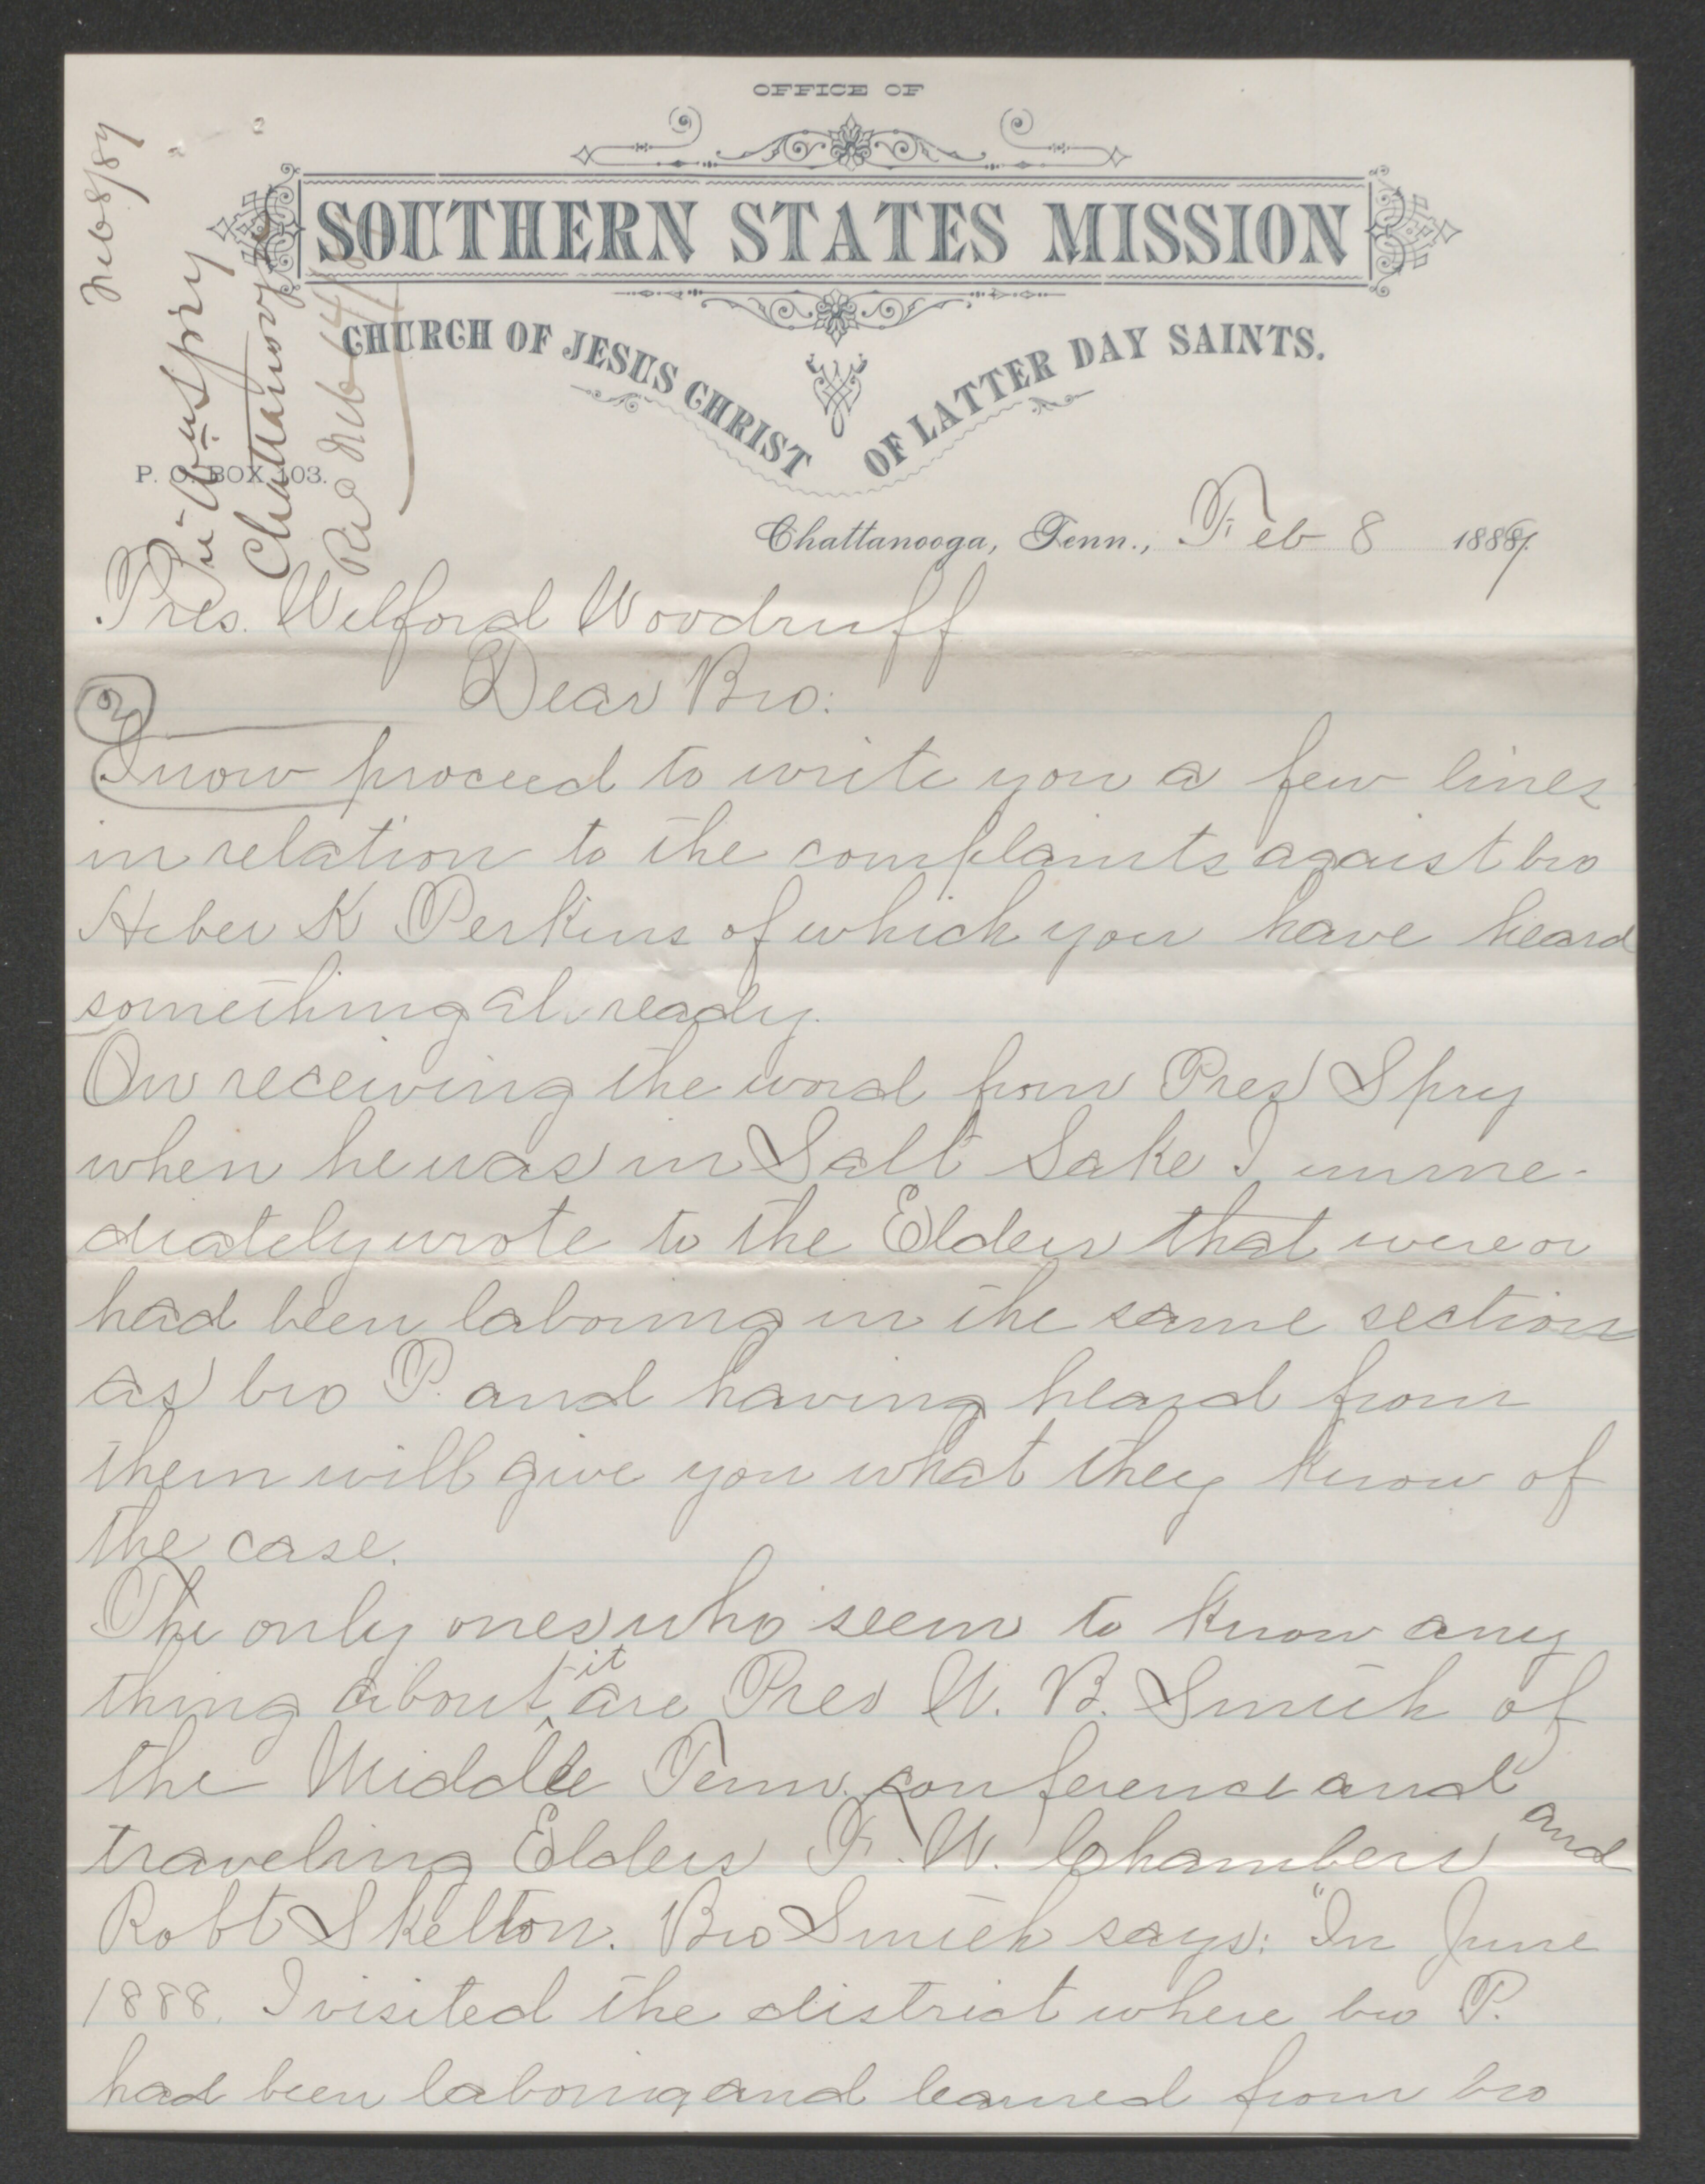 OFFICE OF
SOUTHERN STATES MISSION
CHURCH OF JESUS CHRIST OF LATTER DAY SAINTS.
P. O. BOX 103.
Feb 8/89
Wm Spry
Chattanooga
Rec Feb 14/89
Chattanooga, Tenn., Feb 8 1889.
Pres. Wilford Woodruff
Dear Bro:
I now proceed to write you a few lines
in relation to the complaints agaist bro
Heber K Perkins of which you have heard
something already.
On receiving the word from Pres Spry
when he was in Salt Lake I imme-
diately wrote to the Elders that were or
had been laboring in the same section
as bro P. and having heard from
them will give you what they know of
the case.
The only ones who seem to know any
thing about it are Pres W. B. Smith of
the Middle Tenn. conference and
traveling Elders F. W. Chambers and
Robt Skelton. Bro Smith says: "In June
1888. I visited the district where bro P.
had been laboring and learned from bro